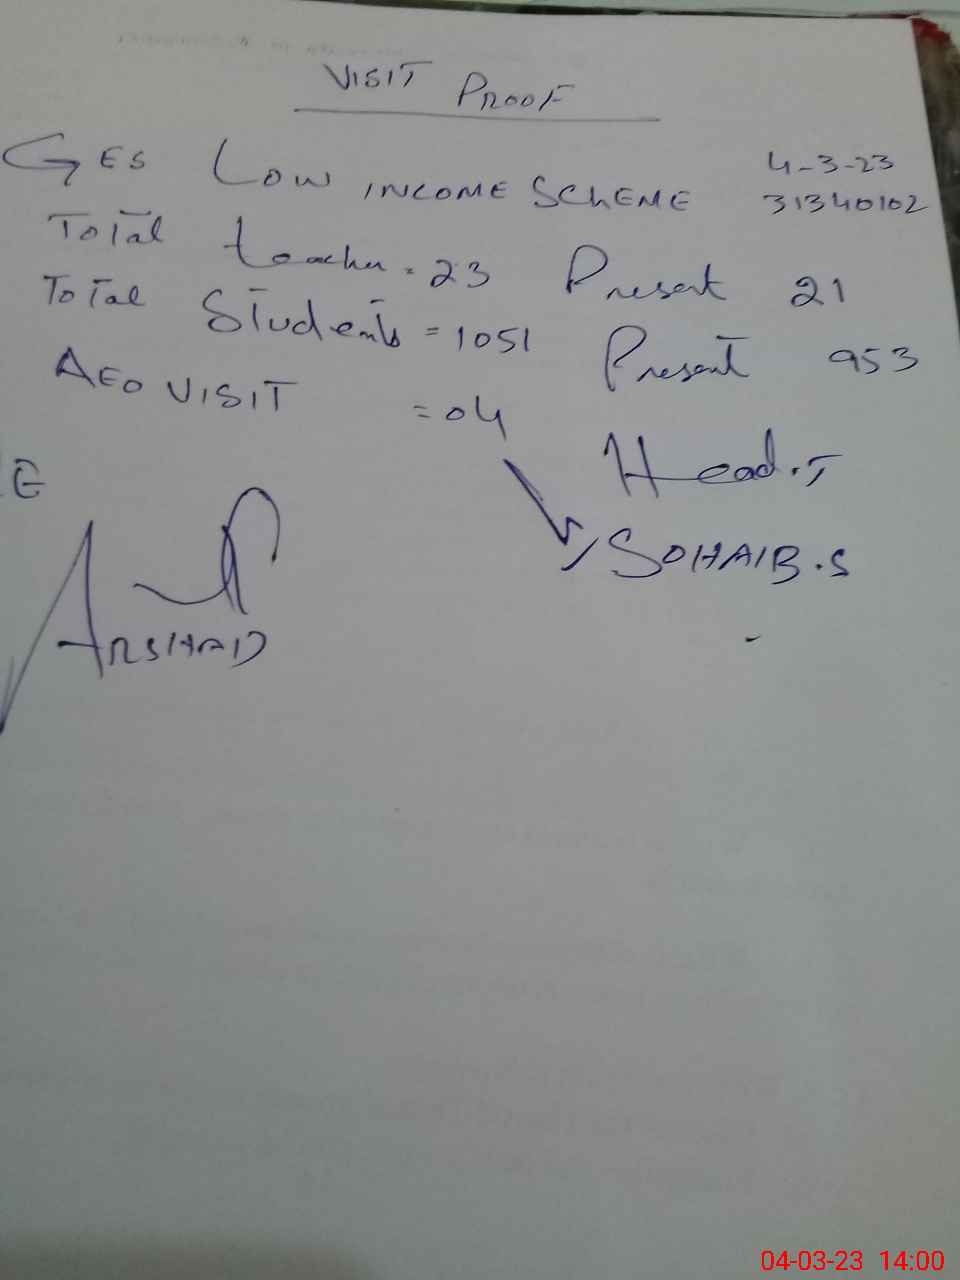 VISIT PROOF
GES LOW INCOME SCHEME 4-3-23
31340102
Total teacher = 23 Present 21
Total Students = 1051 Present 953
AEO VISIT = 04
Head.T
E
SOHAIB.S
ARSHAD
04-03-23 14:00